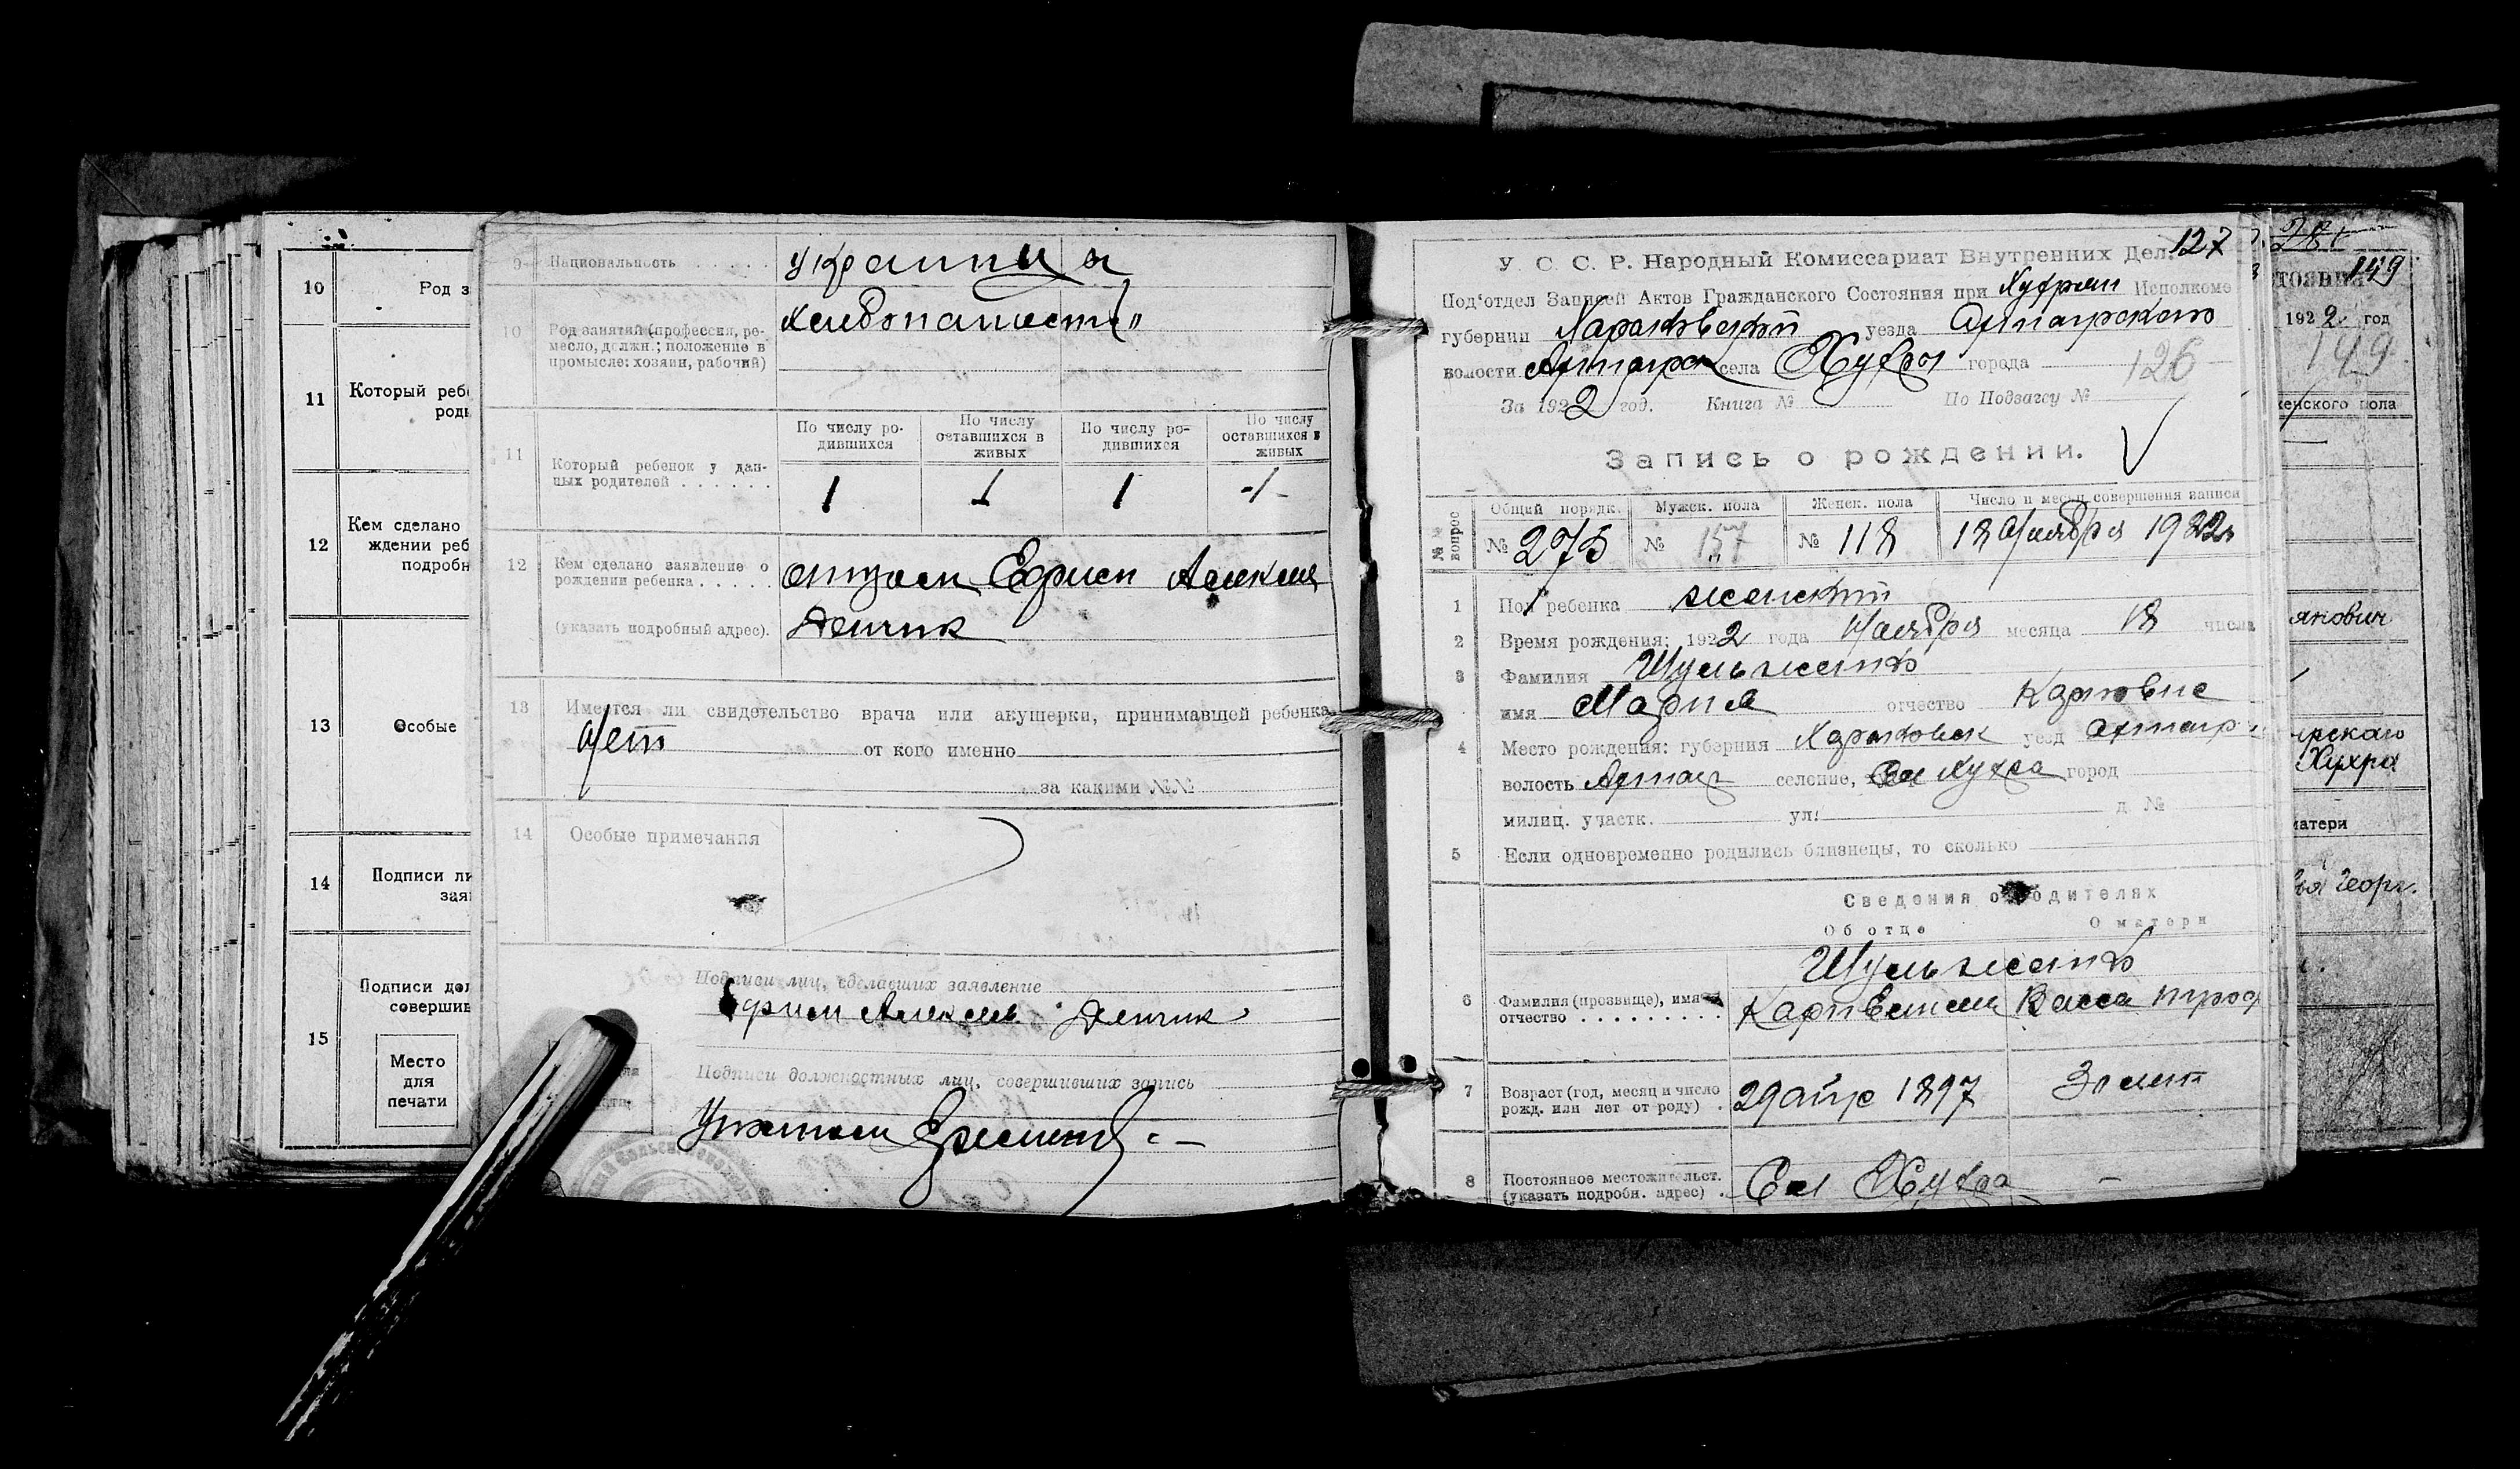 10
Род з
11
Который реб
родь
12
Кем сделано
ждении реб
подробн
13
Особые
14
Подписи ли
зая
15
Подписи дол
соверши
Место
для
печати
9 Национальность . . . . .
украинца
10 Род занятий (профессия, ре-
месло, должн.; положение в
промысле: хозяин, рабочий)
хлебопашест
11 Который ребенок у дан-
ных родителей . . . . . .
По числу ро-
дившихся
По числу
оставшихся в
живых
По числу ро-
дившихся
По числу
оставшихся в
живых
1 1 1 -1-
12 Кем сделано заявление о
рождении ребенка . . . . .
(указать подробный адрес).
отцом Ефрем Алексеев
Демчик
13 Имеется ли свидетельство врача или акушерки, принимавшей ребенка
Нет от кого именно
за какими №№
14 Особые примечания
Подписи лиц, сделавших заявление
Ефрем Алексеев Демчик
Подписи должностных лиц, совершивших запись
127
У. С. С. Р. Народный Комиссариат Внутренних Дел.
Под'отдел Записей Актов Гражданского Состояния при Хухрян Исполкоме
губернии Харьковской уезда Ахтырского
волости Ахтырск села Хухры города
126
За 1922 год. Книга № По Подзагсу №
Запись о рождении.
№№ вопрос
Общий порядк. Мужск. пола Женск. пола Число и месяц совершения записи
№ 275 № 157 № 118 18 Ноября 1922
1 Пол ребенка женский
2 Время рождения: 1922 года Ноября месяца 18 числа
3 Фамилия Шульженко
имя Мария отчество Карповне
4 Место рождения: губерния Харьковск уезд Ахтыр
волость Ахтыр селение, Сел Хухра город
милиц. участк. ул. д №
5 Если одновременно родились близнецы, то сколько
Сведения о родителях
Об отце О матери
Шульженко
6 Фамилия (прозвище), имя и
отчество . . . . . . . . .
Карп Васса
7 Возраст (год, месяц и число
рожд. или лет от роду) .
29 апр 1897 30 лет
8 Постоянное местожительст.
(указать подробн. адрес) .
Сел Хухра –
149
тояния
1922 год
149
женского пола
янович
ирскаго
Хухра
матери
Георг.